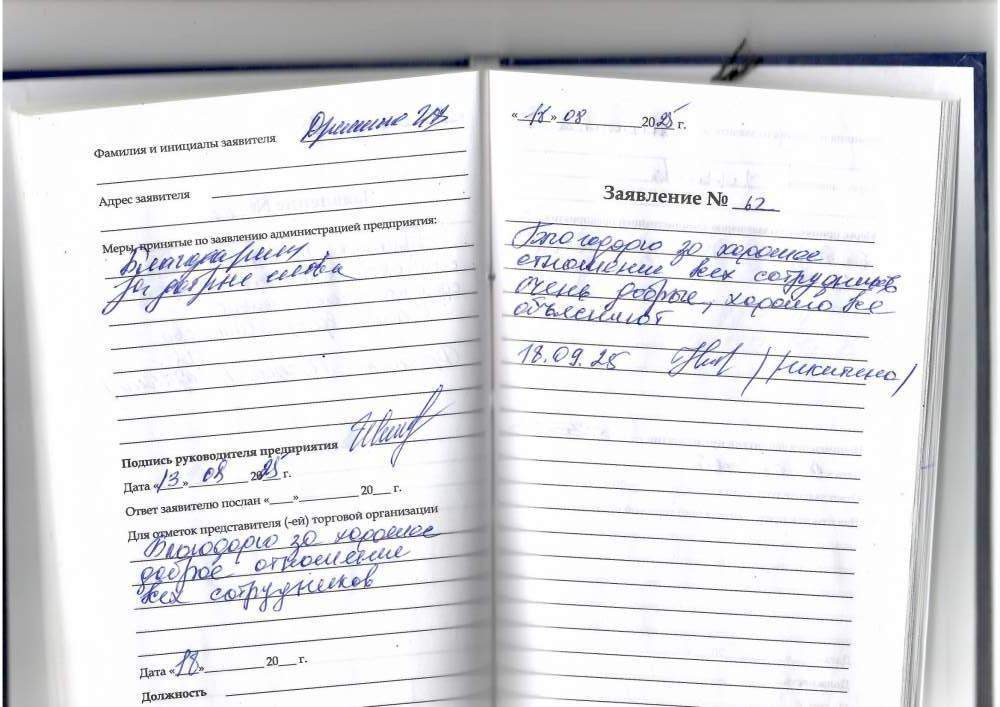 Фамилия и инициалы заявителя
Адрес заявителя
Меры, принятые по заявлению администрацией предприятия:
Благодарим
за добрые слова
Подпись руководителя предприятия
Дата «13» 08 2025 г.
Ответ заявителю послан «___»__________ 20___ г.
Для отметок представителя (-ей) торговой организации
Благодарю за хорошее
доброе отношение
всех сотрудников
Дата «18»__________ 20___ г.
Должность
«18» 08 2025 г.
Заявление № 62
Благодарю за хорошее
отношение всех сотрудников
очень добрые, хорошо все
объясняют
18.09.25 /Никитина/